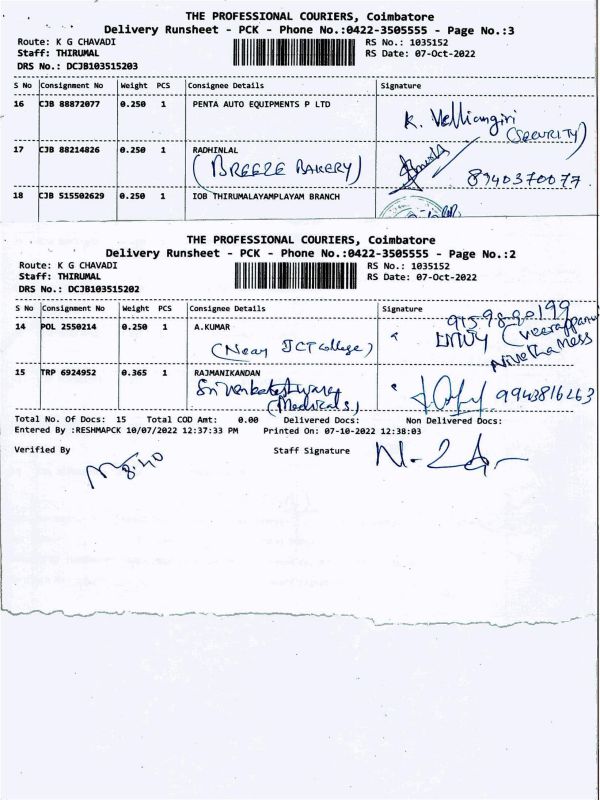 THE PROFESSIONAL COURIERS, Coimbatore
Delivery Runsheet - PCK - Phone No.:0422-3505555 - Page No.:3
Route: K G CHAVADI RS No.: 1035152
Staff: THIRUMAL RS Date: 07-Oct-2022
DRS No.: DCJB103515203
S No Consignment No Weight PCS Consignee Details Signature
16 CJB 88872077 0.250 1 PENTA AUTO EQUIPMENTS P LTD
K. Velliangiri
(SECURITY)
17 CJB 88214826 0.250 1 RADHINLAL
(BREEZE BAKERY) 8940370077
18 CJB 515502629 0.250 1 IOB THIRUMALAYAMPLAYAM BRANCH
THE PROFESSIONAL COURIERS, Coimbatore
Delivery Runsheet - PCK - Phone No.:0422-3505555 - Page No.:2
Route: K G CHAVADI RS No.: 1035152
Staff: THIRUMAL RS Date: 07-Oct-2022
DRS No.: DCJB103515202
S No Consignment No Weight PCS Consignee Details Signature
14 POL 2550214 0.250 1 A.KUMAR
(Near JCT College)
15 TRP 6924952 0.365 1 RAJMANIKANDAN
Sri Venkateshwara
(Medicals) 9943816263
Total No. Of Docs: 15 Total COD Amt: 0.00 Delivered Docs: Non Delivered Docs:
Entered By :RESHMAPCK 10/07/2022 12:37:33 PM Printed On: 07-10-2022 12:38:03
Verified By Staff Signature